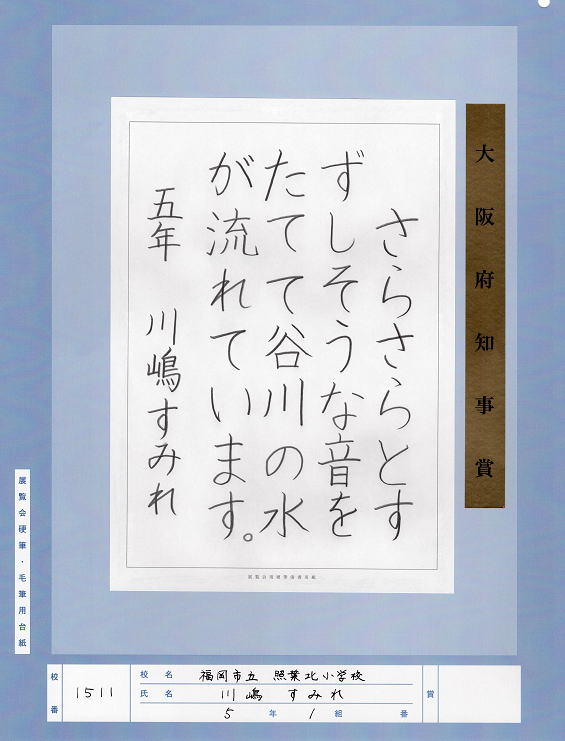 大阪府知事賞
さらさらとす
ずしそうな音を
たてて谷川の水
が流れています。
五年 川嶋すみれ
展覧会用硬筆清書用紙
展覧会硬筆・毛筆用台紙
校番 1511
校名 福岡市立 照葉北小学校
氏名 川嶋 すみれ
5年 1組 番
賞